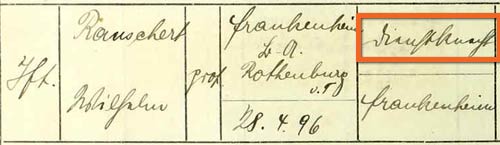 Jft.
Rauschert
Wilhelm
prot.
Frankenheim
B.-A.
Rothenburg
o.T.
28. 4. 96
Dienstknecht
Frankenheim